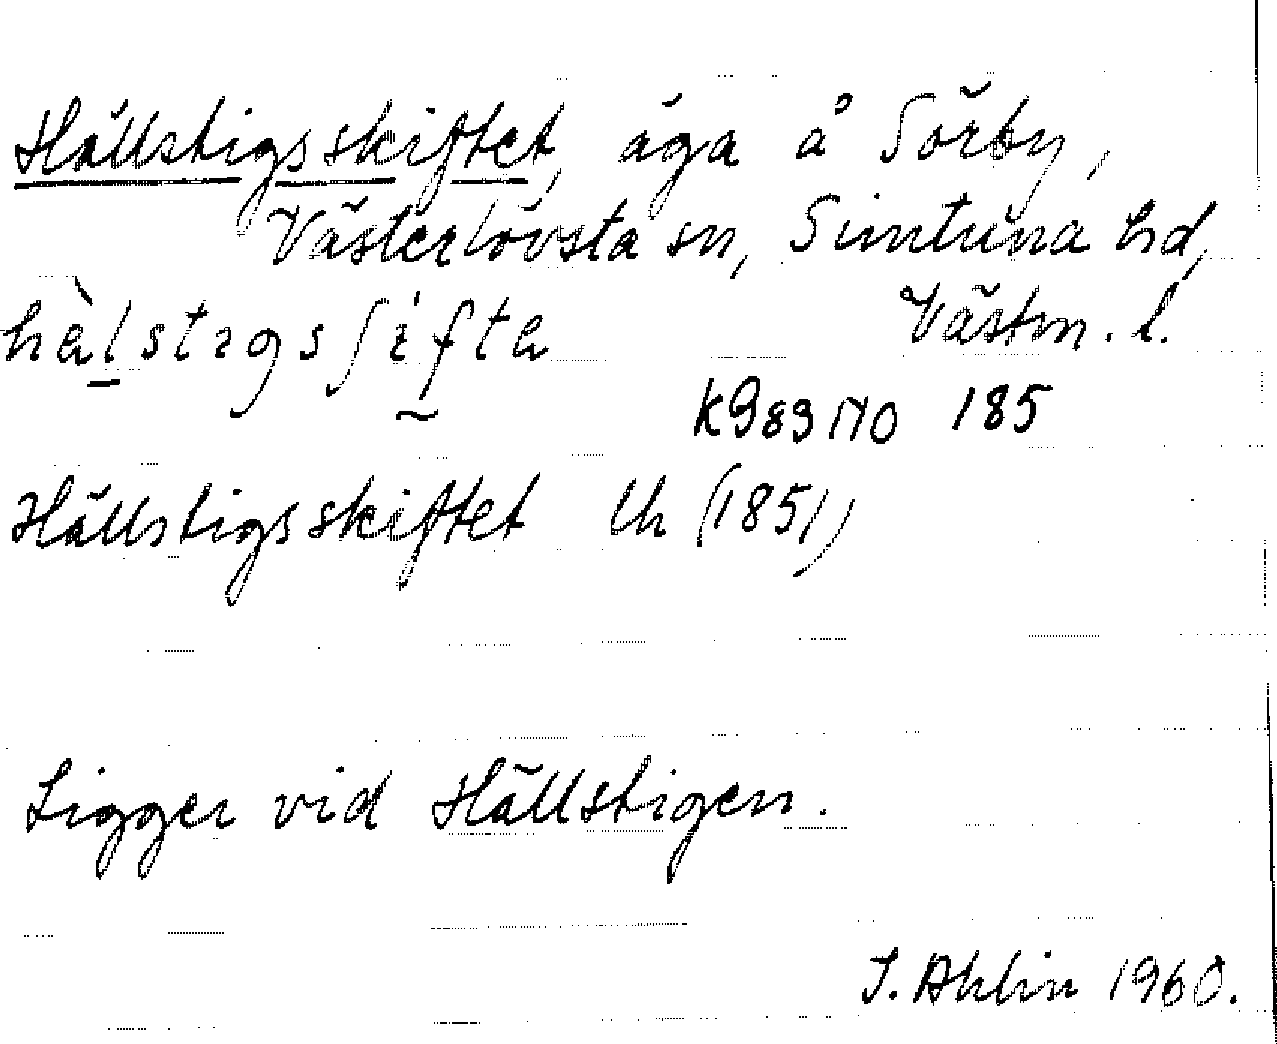 Hällstigsskiftet, äga å Sörby,
Västerlövsta sn, Simtuna hd,
Västm. l.
K983170 185
Hällstigsskiftet Lh (1851)
Ligger vid Hällstigen.
I. Ahlin 1960.